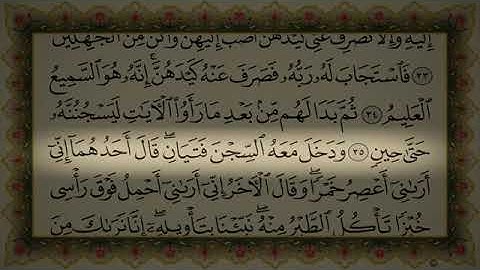 إِلَيْهِ وَإِلَّا تَصْرِفْ عَنِّي كَيْدَهُنَّ أَصْبُ إِلَيْهِنَّ وَأَكُن مِّنَ ٱلْجَٰهِلِينَ
٣٣ فَٱسْتَجَابَ لَهُۥ رَبُّهُۥ فَصَرَفَ عَنْهُ كَيْدَهُنَّ ۚ إِنَّهُۥ هُوَ ٱلسَّمِيعُ
ٱلْعَلِيمُ ٣٤ ثُمَّ بَدَا لَهُم مِّنۢ بَعْدِ مَا رَأَوُا۟ ٱلْـَٔايَٰتِ لَيَسْجُنُنَّهُۥ
حَتَّىٰ حِينٍ ٣٥ وَدَخَلَ مَعَهُ ٱلسِّجْنَ فَتَيَانِ ۖ قَالَ أَحَدُهُمَآ إِنِّىٓ
أَرَىٰنِىٓ أَعْصِرُ خَمْرًا ۖ وَقَالَ ٱلْـَٔاخَرُ إِنِّىٓ أَرَىٰنِىٓ أَحْمِلُ فَوْقَ رَأْسِى
خُبْزًا تَأْكُلُ ٱلطَّيْرُ مِنْهُ ۖ نَبِّئْنَا بِتَأْوِيلِهِۦٓ ۖ إِنَّا نَرَىٰكَ مِنَ